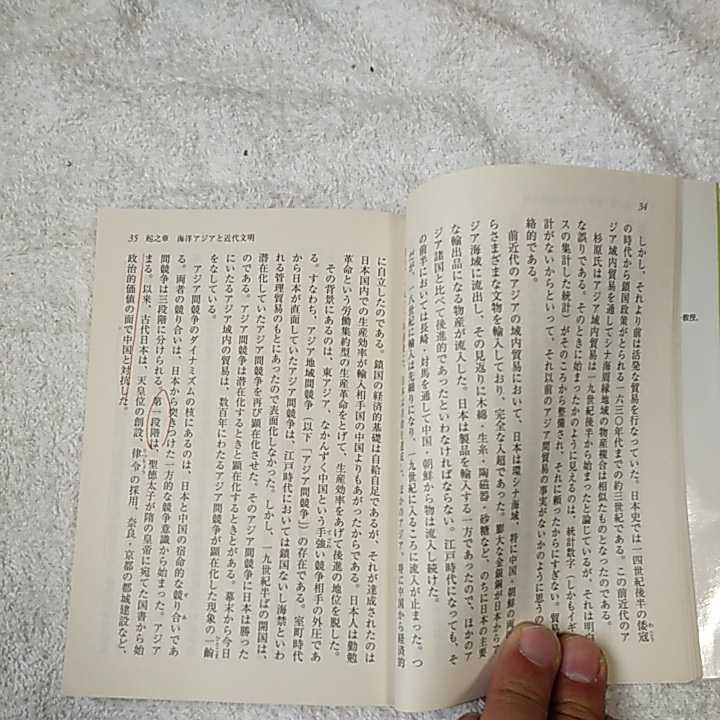 34
しかし、それより前は活発な貿易を行なっていた。日本史では一四世紀後半の倭寇
の時代から鎖国政策がとられる一六三〇年代までの約三世紀である。この前近代のア
ジア域内貿易を通してシナ海周縁地域の物産複合は相似たものとなったのである。
杉原氏はアジア域内貿易は一九世紀後半から始まったと論じているが、それは明
な誤りである。そのときに始まったかのように見えるのは、統計数字（しかもイギ
スの集計した統計）がそのころから整備され、それに頼ったからにすぎない。貿
計がないからといって、それ以前のアジア間貿易の事実がないかのように思うの
絡的である。
前近代のアジアの域内貿易において、日本は環シナ海域、特に中国・朝鮮の両
らさまざまな文物を輸入しており、完全な入超であった。膨大な金銀銅が日本から
ジア海域に流出し、その見返りに木綿・生糸・陶磁器・砂糖など、のちに日本の主要
な輸出品になる物産が流入した。日本は製品を輸入する一方であったので、ほかのア
ジア諸国と比べて後進的であったといわなければならない。江戸時代になっても、そ
の前半においては長崎・対馬を通して中国・朝鮮から物は流入し続けた。
が、一八世紀に輸入は先細りになり、一九世紀に入るころに流入が止まった。つ
ほかのアジア、特に中国から経済的
35 起之章 海洋アジアと近代文明
に自立したのである。鎖国の経済的基礎は自給自足であるが、それが達成されたのは
日本国内での生産効率が輸入相手国の中国よりもあがったからである。日本人は勤勉
革命という労働集約型の生産革命をとげて、生産効率をあげて後進の地位を脱した。
その背景にあるのは、東アジア、なかんずく中国という手強い競争相手の外圧であ
る。すなわち、アジア地域間競争（以下「アジア間競争」）の存在である。室町時代
から日本が直面していたアジア間競争は、江戸時代においては鎖国ないし海禁といわ
れる管理貿易のもとにあったので表面化しなかった。しかし、一九世紀半ばの開国は、
潜在化していたアジア間競争を再び顕在化させた。そのアジア間競争に日本は勝った
のである。アジア間競争は潜在化するときと顕在化するときとがある。幕末から今日
にいたるアジア域内の貿易は、数百年にわたるアジア間競争が顕在化した現象の一齣
をなしている。
アジア間競争のダイナミズムの核にあるのは、日本と中国の宿命的な競り合いであ
る。両者の競り合いは、日本から突きつけた一方的な競争意識から始まった。アジア
間競争は三段階に分けられる。第一段階は、聖徳太子が隋の皇帝に宛てた国書から始
まる。以来、古代日本は、天皇位の創設、律令の採用、奈良・京都の都城建設など、
政治的価値の面で中国と対抗した。
教授。